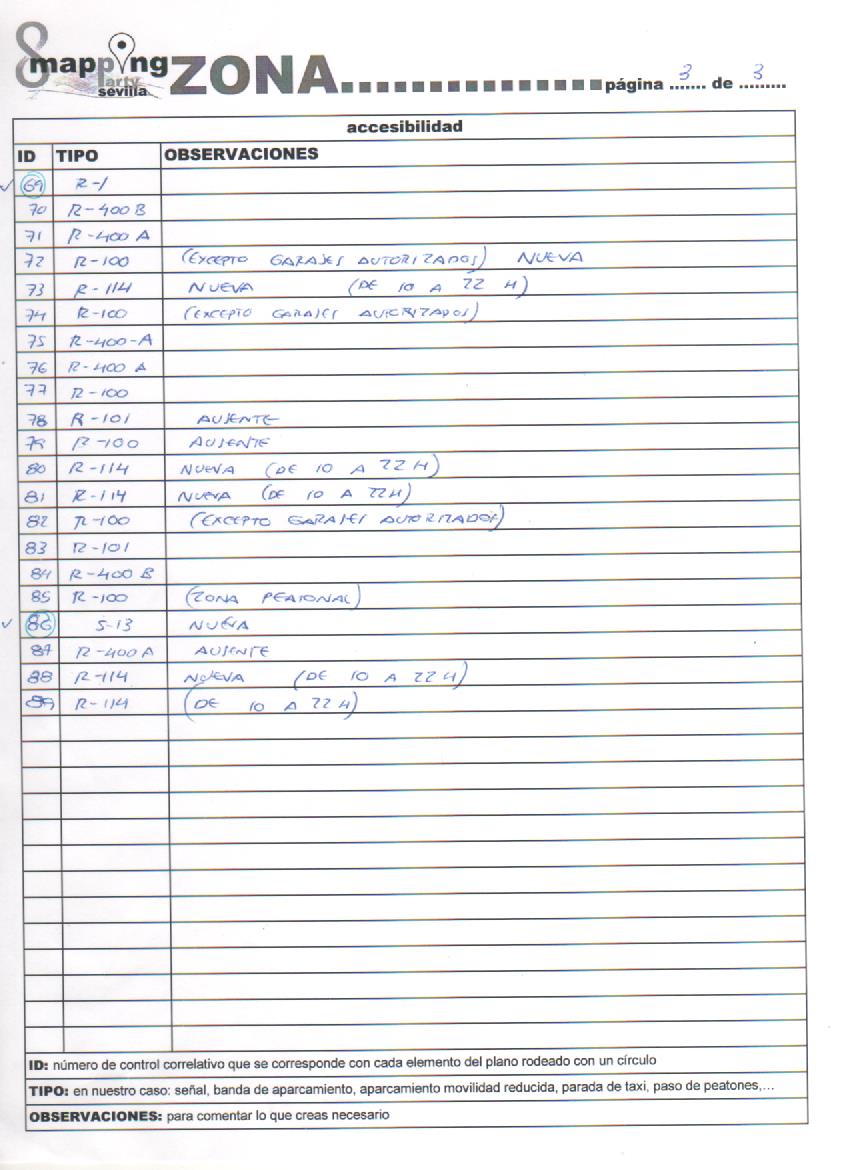 8 mapping party sevilla ZONA................ página 3 de 3
accesibilidad
ID TIPO OBSERVACIONES
✓ 69 R-1
70 R-400 B
71 R-400 A
72 R-100 (EXCEPTO GARAJES AUTORIZADOS) NUEVA
73 R-114 NUEVA (DE 10 A 22 H)
74 R-100 (EXCEPTO GARAJES AUTORIZADOS)
75 R-400-A
76 R-400 A
77 R-100
78 R-101 AUSENTE
79 R-100 AUSENTE
80 R-114 NUEVA (DE 10 A 22 H)
81 R-114 NUEVA (DE 10 A 22H)
82 R-100 (EXCEPTO GARAJES AUTORIZADOS)
83 R-101
84 R-400 B
85 R-100 (ZONA PEATONAL)
✓ 86 S-13 NUEVA
87 R-400 A AUSENTE
88 R-114 NUEVA (DE 10 A 22 H)
89 R-114 (DE 10 A 22 H)
ID: número de control correlativo que se corresponde con cada elemento del plano rodeado con un círculo
TIPO: en nuestro caso: señal, banda de aparcamiento, aparcamiento movilidad reducida, parada de taxi, paso de peatones,...
OBSERVACIONES: para comentar lo que creas necesario